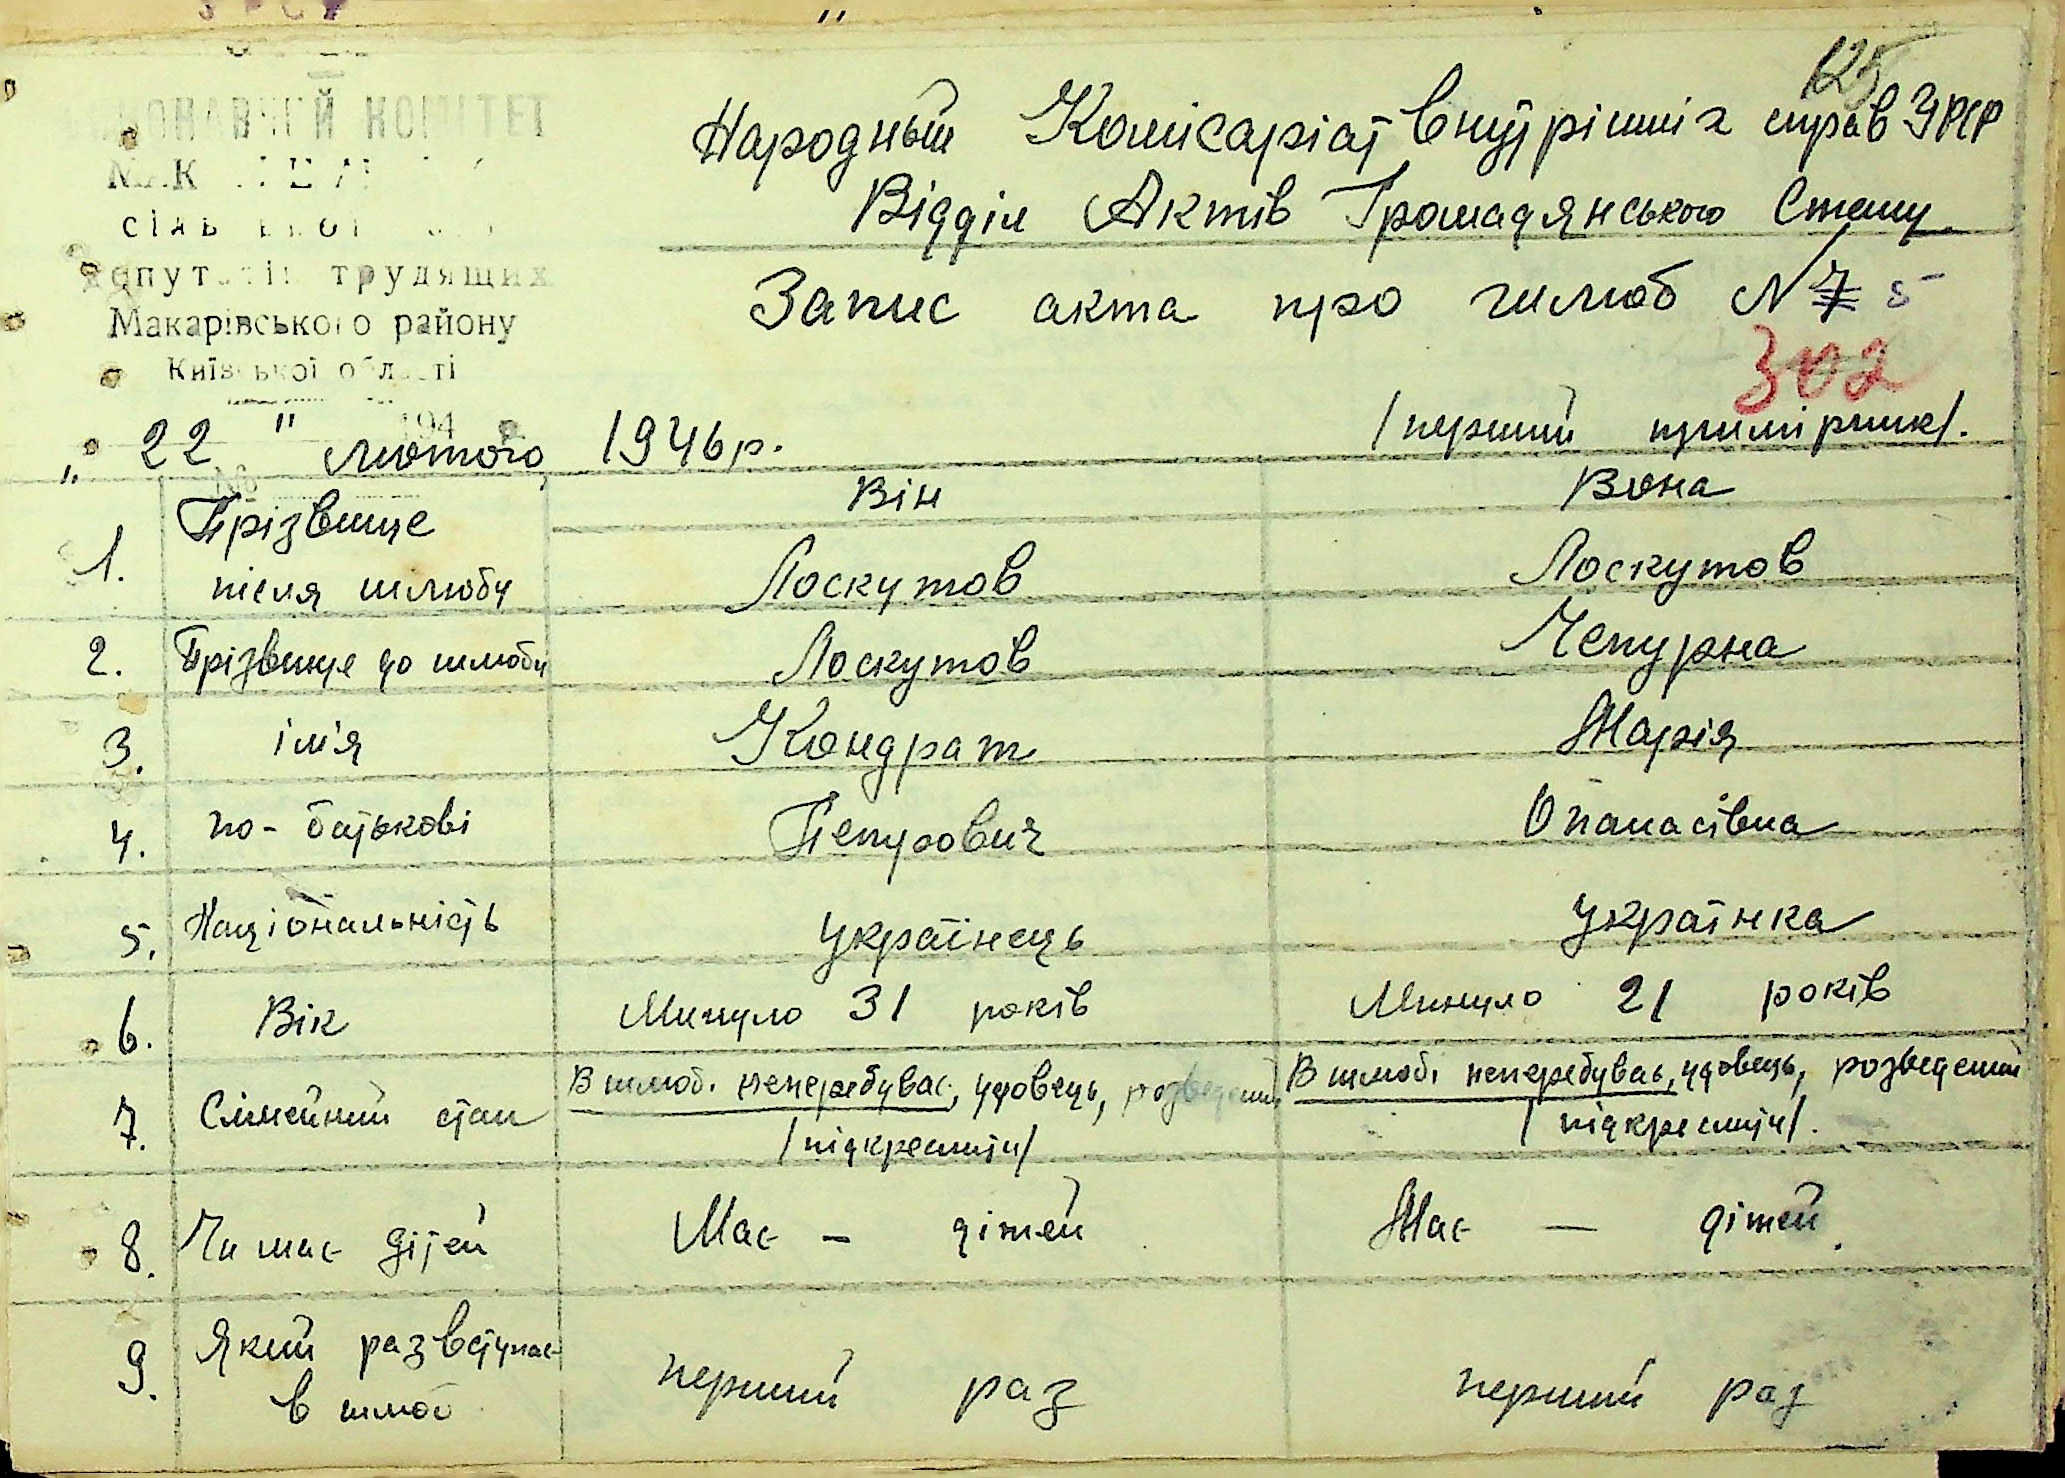 125
Народный Комісаріат внутрішніх справ УРСР
Відділ Актів Громадянського Стану
трудящих
Запис акта про шлюб N 7 5
Макарівського району
Київської області
302
194
„ 22 " лютого 1946 р. /перший примірник/.
№
Він Вона
1. Прізвище після шлюбу Лоскутов Лоскутов
2. Прізвище до шлюбу Лоскутов Чепурна
3. ім'я Кондрат Марія
4. по-батькові Петрович Опанасівна
5. Національність Українець Українка
6. Вік Минуло 31 років Минуло 21 років
7. Сімейний стан В шлюбі неперебував, удовець, розведений /підкреслити/ В шлюбі неперебував, удовець, розведений /підкреслити/.
8. Чи має дітей Має – дітей Має — дітей.
9. Який раз вступає в шлюб перший раз перший раз